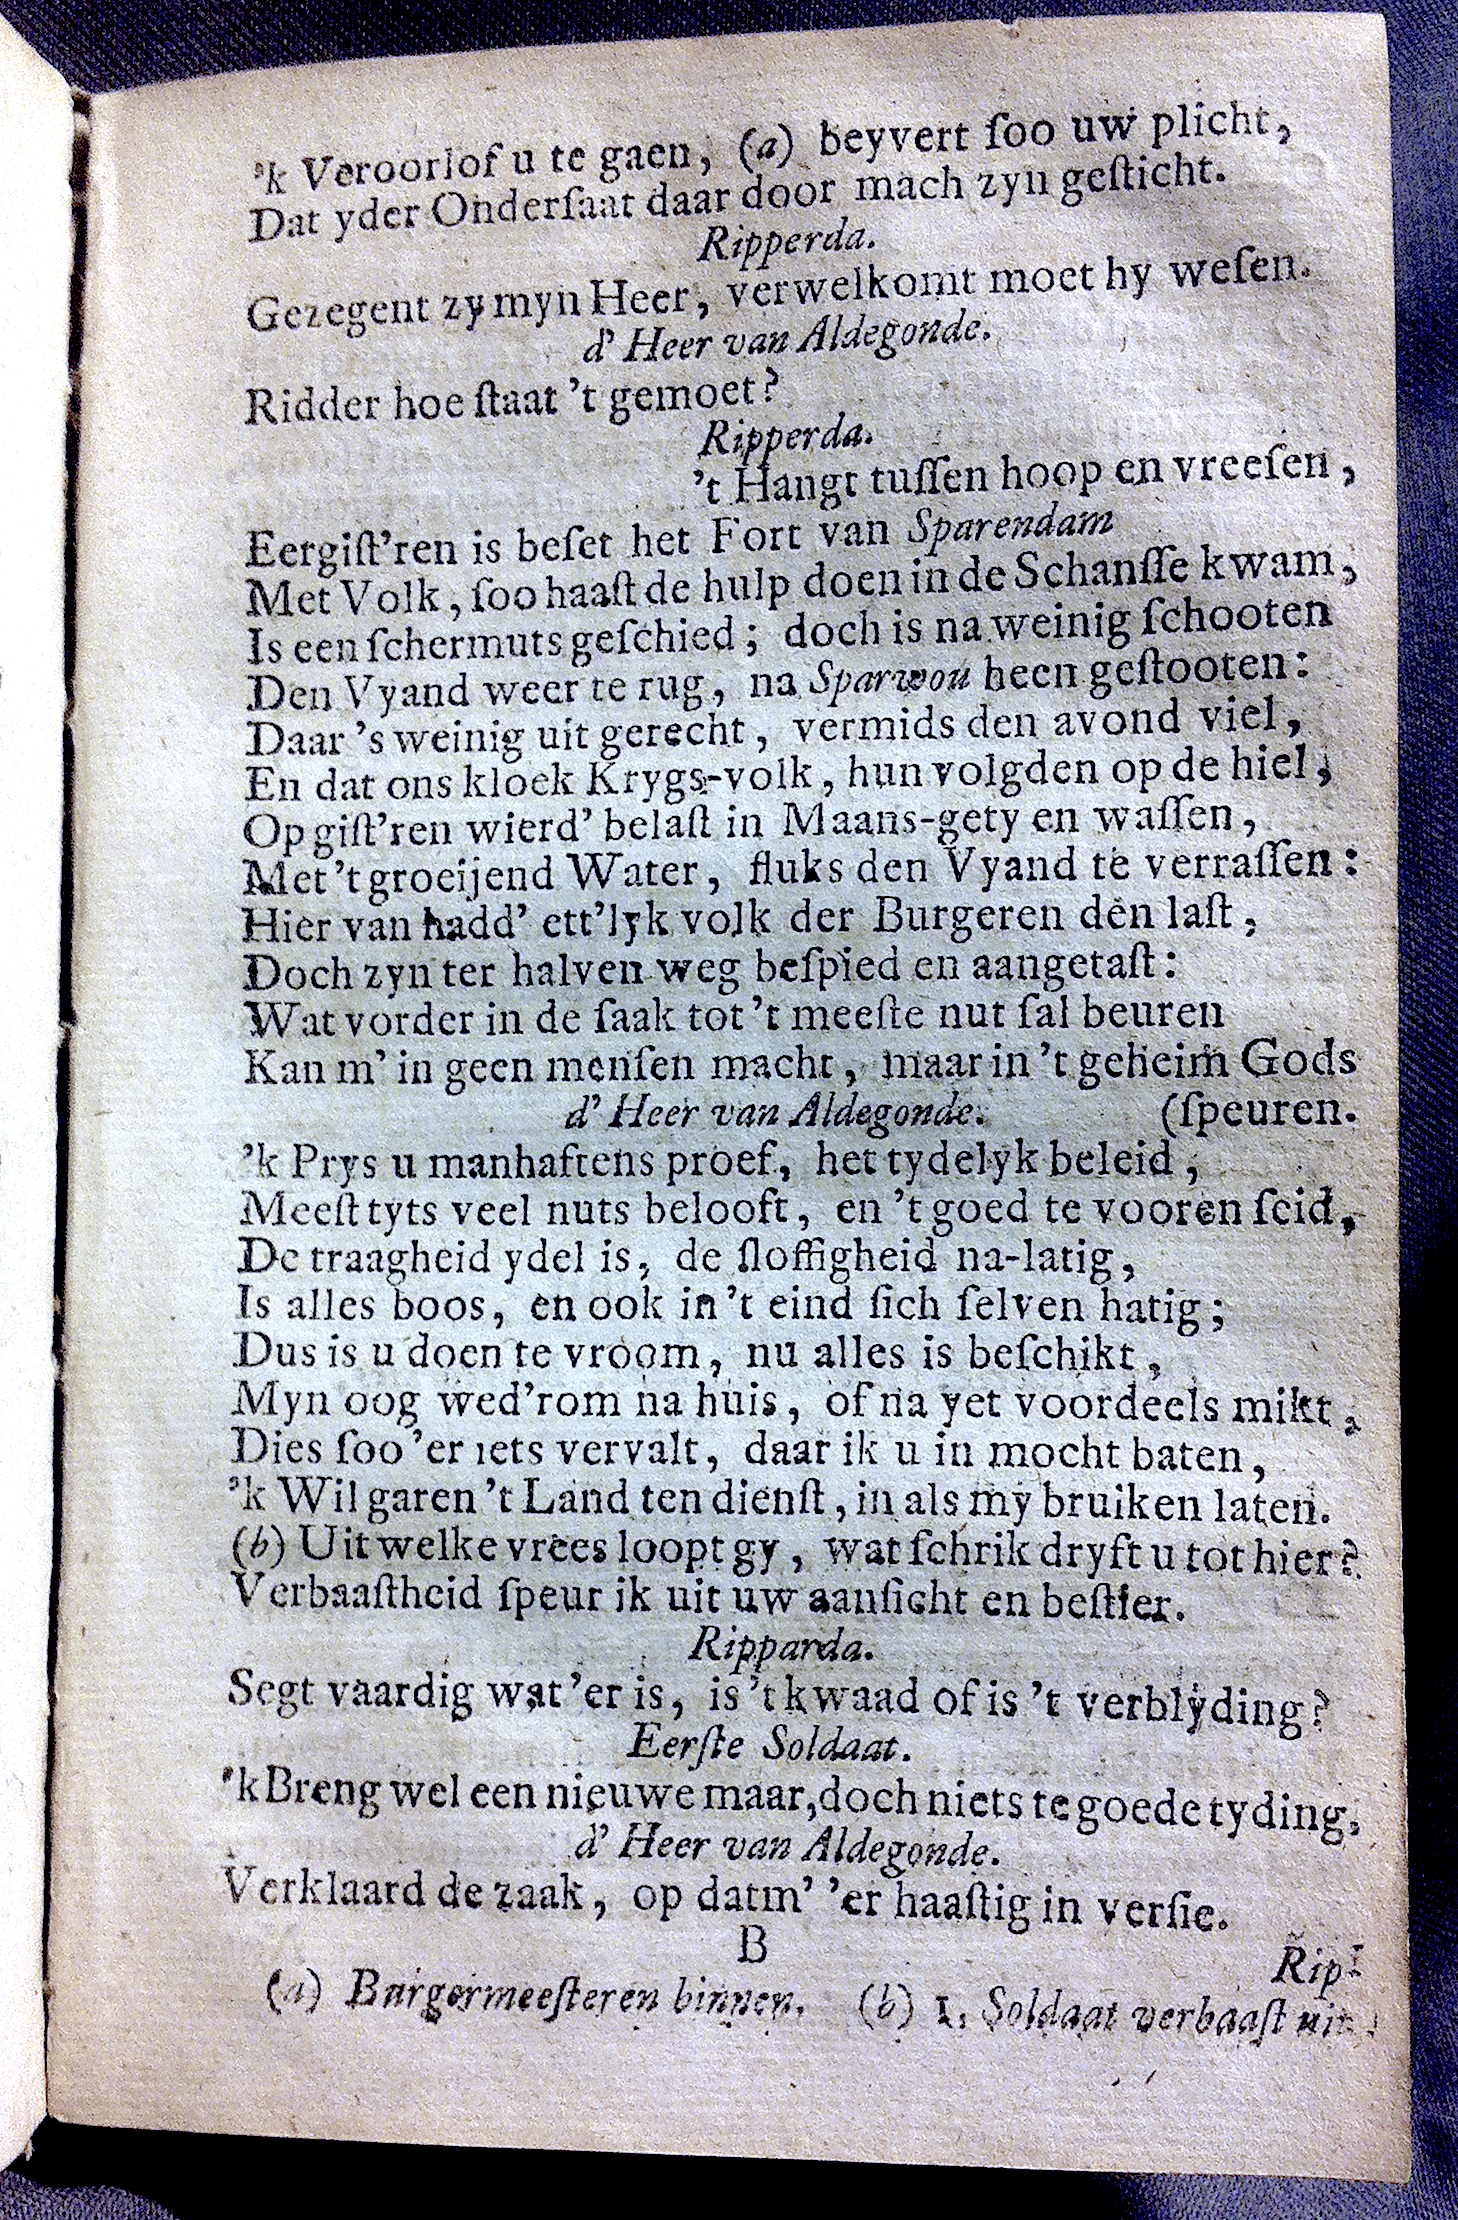 'k Veroorlof u te gaen, (a) beyvert ſoo uw plicht,
Dat yder Onderſaat daar door mach zyn geſticht.
Ripperda.
Gezegent zy myn Heer, verwelkomt moet hy weſen.
d' Heer van Aldegonde.
Ridder hoe ſtaat 't gemoet?
Ripperda.
't Hangt tuſſen hoop en vreeſen,
Eergiſt'ren is beſet het Fort van Sparendam
Met Volk, ſoo haaſt de hulp doen in de Schanſſe kwam,
Is een ſchermuts geſchied; doch is na weinig ſchooten
Den Vyand weer te rug, na Sparwou heen geſtooten:
Daar 's weinig uit gerecht, vermids den avond viel,
En dat ons kloek Krygs-volk, hun volgden op de hiel,
Op giſt'ren wierd' belaſt in Maans-gety en waſſen,
Met 't groeijend Water, fluks den Vyand te verraſſen:
Hier van hadd' ett'lyk volk der Burgeren den laſt,
Doch zyn ter halven weg beſpied en aangetaſt:
Wat vorder in de ſaak tot 't meeſte nut ſal beuren
Kan m' in geen menſen macht, maar in 't geheim Gods
d' Heer van Aldegonde. (ſpeuren.
'k Prys u manhaftens proef, het tydelyk beleid,
Meeſt tyts veel nuts belooft, en 't goed te vooren ſeid,
De traagheid ydel is, de ſloffigheid na-latig,
Is alles boos, en ook in 't eind ſich ſelven hatig;
Dus is u doen te vroom, nu alles is beſchikt,
Myn oog wed'rom na huis, of na yet voordeels mikt,
Dies ſoo 'er iets vervalt, daar ik u in mocht baten,
'k Wil garen 't Land ten dienſt, in als my bruiken laten.
(b) Uit welke vrees loopt gy, wat ſchrik dryft u tot hier?
Verbaaſtheid ſpeur ik uit uw aanſicht en beſtier.
Ripparda.
Segt vaardig wat 'er is, is 't kwaad of is 't verblyding?
Eerſte Soldaat.
'k Breng wel een nieuwe maar, doch niets te goede tyding.
d' Heer van Aldegonde.
Verklaard de zaak, op dat m' 'er haaſtig in verſie.
B
Rip-
(a) Burgermeeſteren binnen. (b) 1. Soldaat verbaaſt uit.